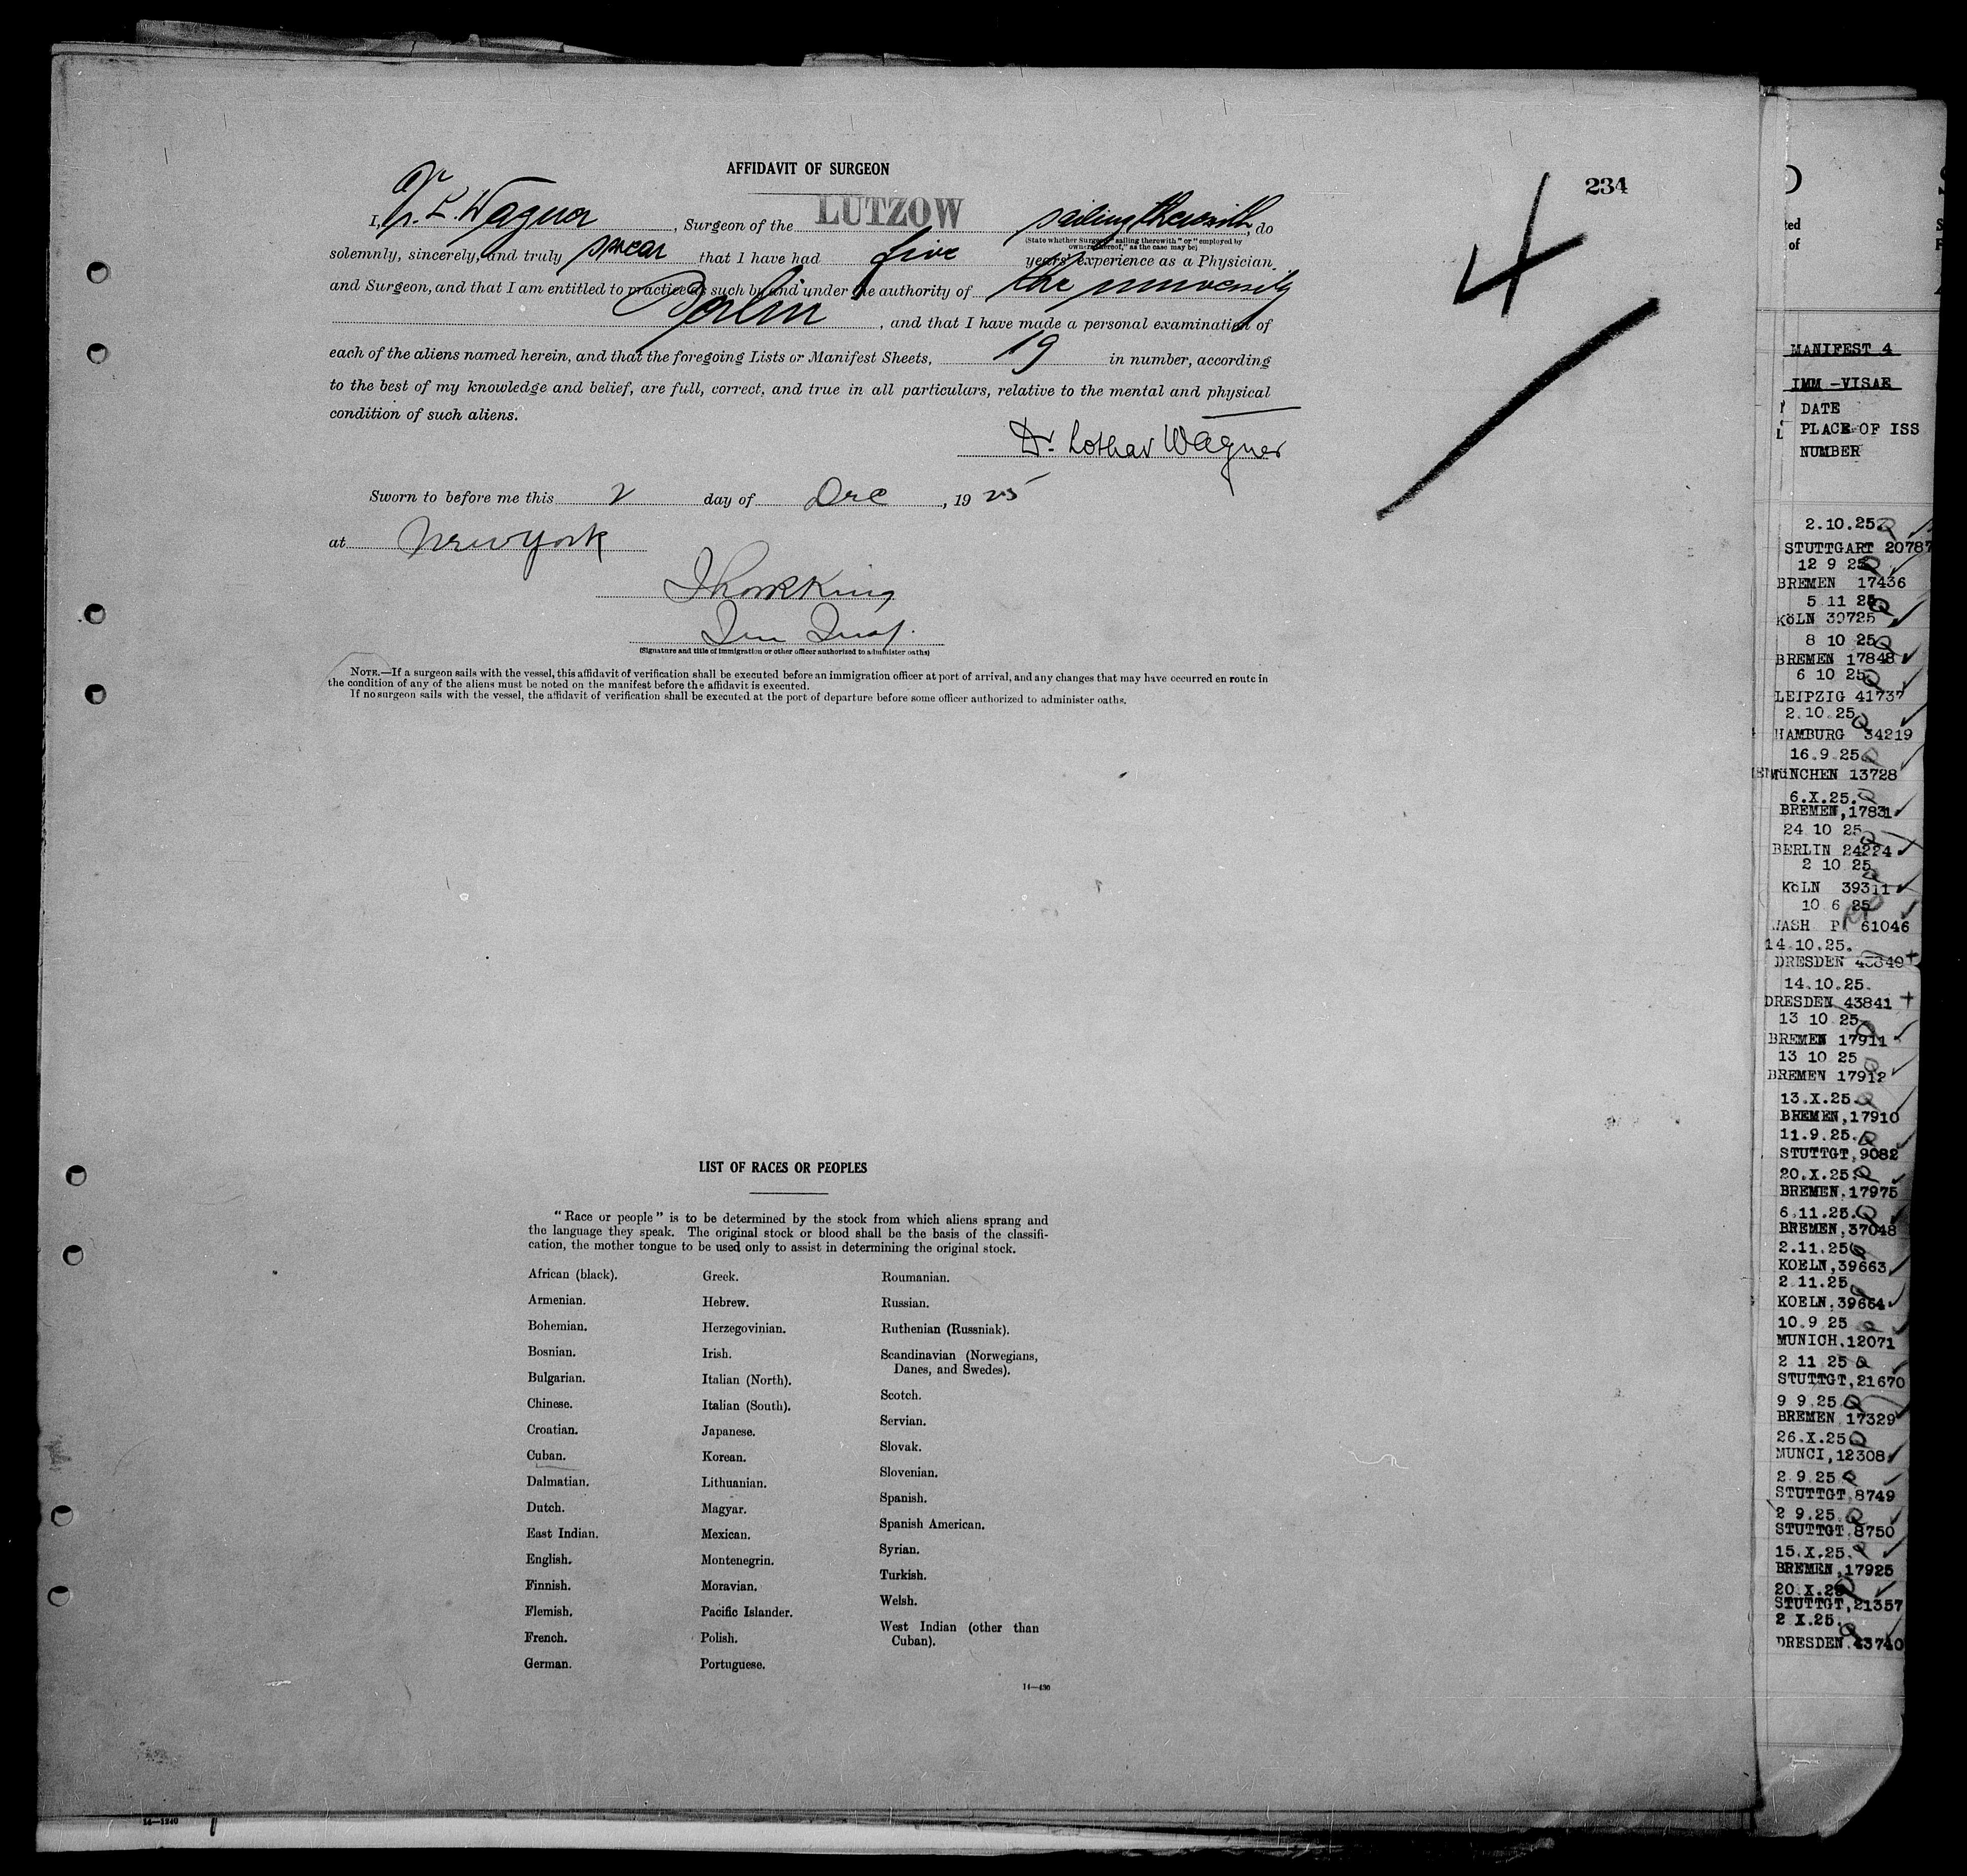 AFFIDAVIT OF SURGEON
234
I, Dr. L. Wagner, Surgeon of the LUTZOW sailing therewith, do
(State whether Surgeon "sailing therewith" or "employed by
owners thereof," as the case may be)
solemnly, sincerely, and truly swear that I have had five years' experience as a Physician
and Surgeon, and that I am entitled to practice as such by and under the authority of the university
Berlin, and that I have made a personal examination of
each of the aliens named herein, and that the foregoing Lists or Manifest Sheets, 19 in number, according
to the best of my knowledge and belief, are full, correct, and true in all particulars, relative to the mental and physical
condition of such aliens.
Dr. Lothar Wagner
Sworn to before me this 2 day of Dec, 1925
at New York
(Signature and title of immigration or other officer authorized to administer oaths)
NOTE.—If a surgeon sails with the vessel, this affidavit of verification shall be executed before an immigration officer at port of arrival, and any changes that may have occurred en route in
the condition of any of the aliens must be noted on the manifest before the affidavit is executed.
If no surgeon sails with the vessel, the affidavit of verification shall be executed at the port of departure before some officer authorized to administer oaths.
LIST OF RACES OR PEOPLES
"Race or people" is to be determined by the stock from which aliens sprang and
the language they speak. The original stock or blood shall be the basis of the classifi-
cation, the mother tongue to be used only to assist in determining the original stock.
African (black).
Armenian.
Bohemian.
Bosnian.
Bulgarian.
Chinese.
Croatian.
Cuban.
Dalmatian.
Dutch.
East Indian.
English.
Finnish.
Flemish.
French.
German.
Greek.
Hebrew.
Herzegovinian.
Irish.
Italian (North).
Italian (South).
Japanese.
Korean.
Lithuanian.
Magyar.
Mexican.
Montenegrin.
Moravian.
Pacific Islander.
Polish.
Portuguese.
Roumanian.
Russian.
Ruthenian (Russniak).
Scandinavian (Norwegians,
Danes, and Swedes).
Scotch.
Servian.
Slovak.
Slovenian.
Spanish.
Spanish American.
Syrian.
Turkish.
Welsh.
West Indian (other than
Cuban).
14—430
14—1240
MANIFEST 4
IMM -VISAE
DATE
PLACE OF ISS
NUMBER
2.10.25.
STUTTGART 20787
12 9 25
BREMEN 17436
5 11 25
KöLN 39725
8 10 25
BREMEN 17848
6 10 25
LEIPZIG 41737
2.10.25
HAMBURG 34219
16.9.25
MüNCHEN 13728
6.X.25.
BREMEN,17831
24 10 25
BERLIN 24224
2 10 25
KöLN 39311
10 6 25
WASH P 61046
14.10.25.
DRESDEN 43840
14.10.25.
DRESDEN 43841
13 10 25
BREMEN 17911
13 10 25
BREMEN 17912
13.X.25.
BREMEN,17910
11.9.25.
STUTTGT,9082
20.X.25.
BREMEN,17975
6.11.25.
BREMEN,37048
2.11.25
KOELN,39663
2 11.25
KOELN,39664
10.9 25
MUNICH,12071
2 11 25
STUTTGT,21670
9 9.25
BREMEN 17329
26.X.25
MUNCI,12308
2 9.25
STUTTGT,8749
2 9.25.
STUTTGT,8750
15.X.25.
BREMEN,17925
20.X.25
STUTTGT,21357
2 X.25.
DRESDEN.43740